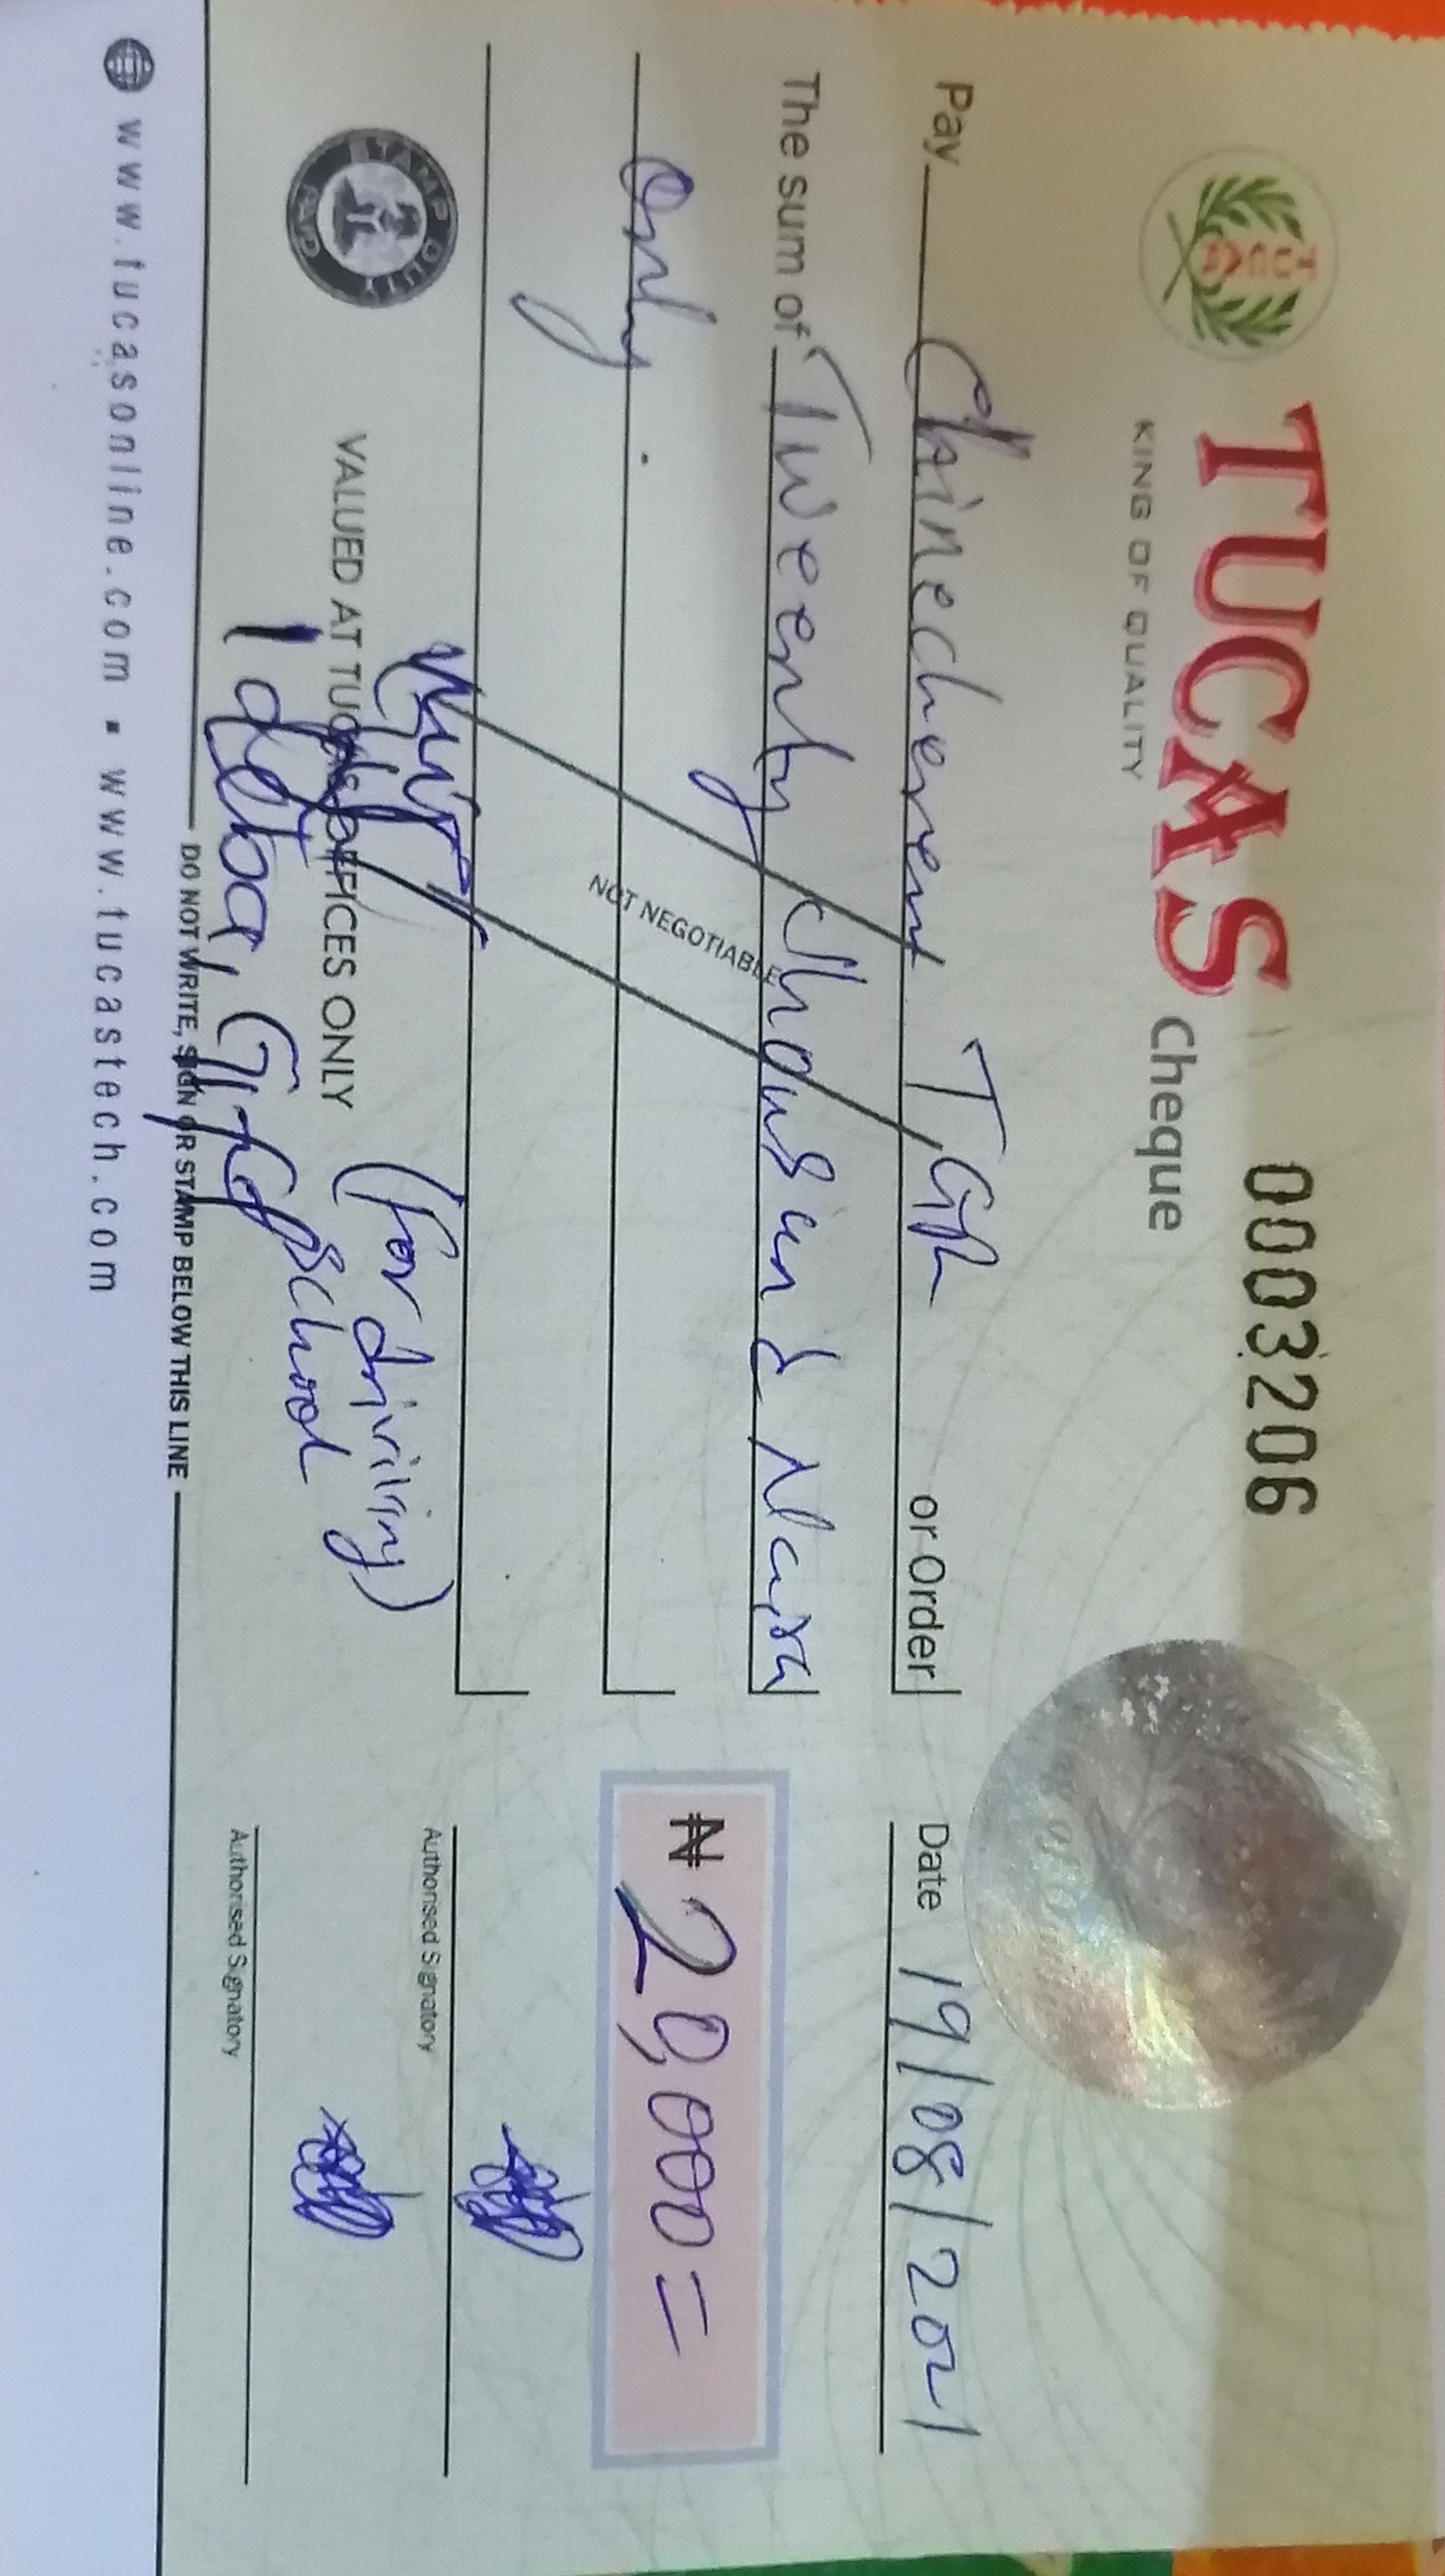 TUCAS Cheque 0003206
KING OF QUALITY
Pay Chinecherem T. or Order
Date 19/08/2021
The sum of Tweenty thousand Naira
only.
₦ 20,000=
NOT NEGOTIABLE
STAMP DUTY PAID
VALUED AT TUCAS OFFICES ONLY
(for driving
School
Authorised Signatory
Authorised Signatory
DO NOT WRITE, SIGN OR STAMP BELOW THIS LINE
www.tucasonline.com ▪ www.tucastech.com